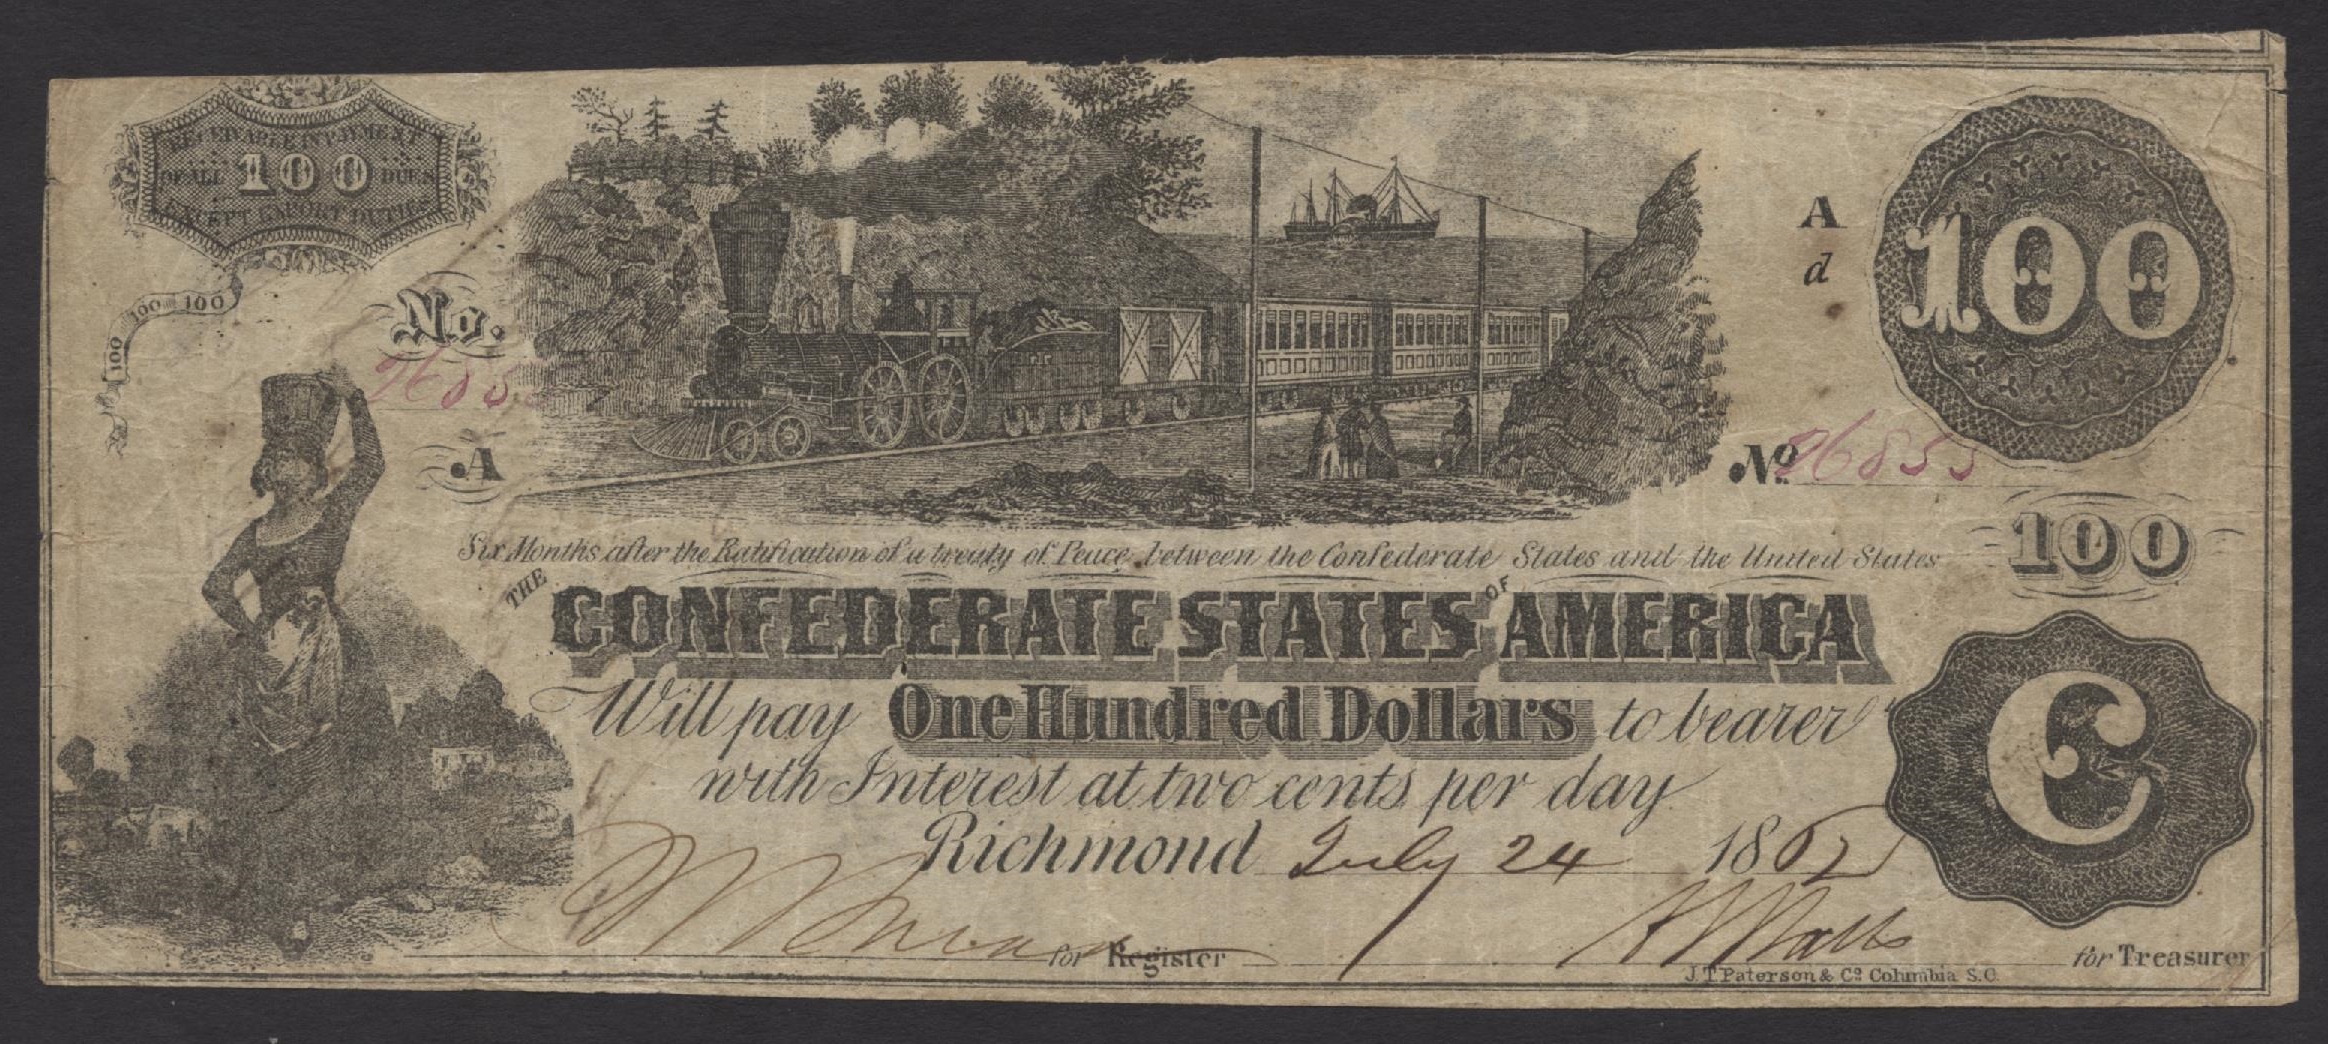 RECEIVABLE IN PAYMENT
OF ALL 100 DUES
EXCEPT EXPORT DUTIES
100 100 100
No.
A
A
d
100
No. 26855
Six Months after the Ratification of a treaty of Peace between the Confederate States and the United States
100
THE CONFEDERATE STATES OF AMERICA
Will pay One Hundred Dollars to bearer
C
with Interest at two cents per day
Richmond July 24 1862
for Register
for Treasurer
J.T. Paterson & Co. Columbia S.C.